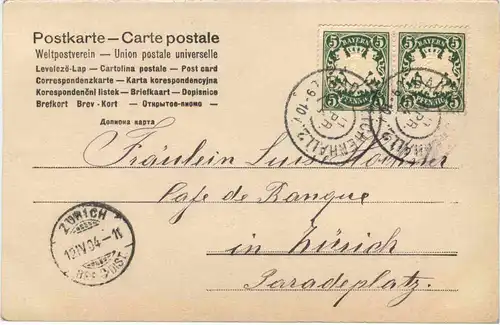 Postkarte — Carte postale
Weltpostverein — Union postale universelle
Levelező-Lap — Cartolina postale — Post card
Correspondenzkarte — Karta korespondencyjna
Korespondenční lístek — Briefkaart — Dopisnice
Brefkort Brev-Kort — Открытое-письмо —
Дописна карта
BAYERN
5 5
PFENNIG
BAYERN
5 5
PFENNIG
Fräulein
Cafe de Banque
in Zürich
Paradeplatz.
ZÜRICH
12 IV 04 - 11